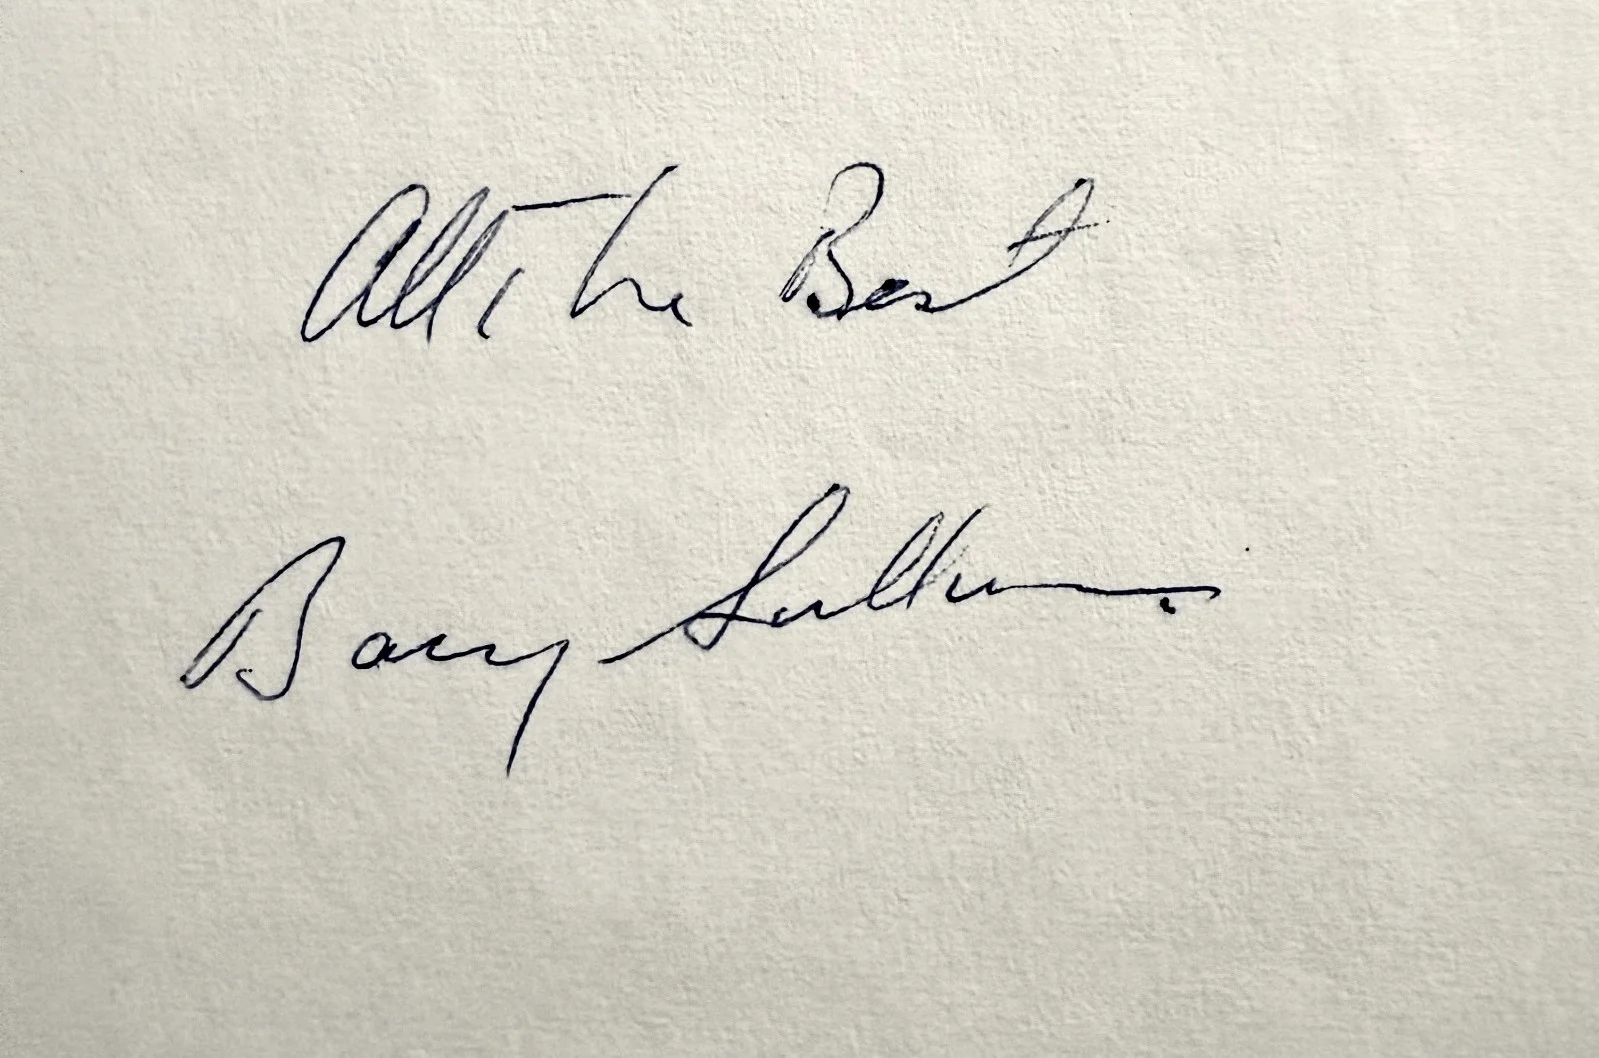 All The Best
Barry Sullivan